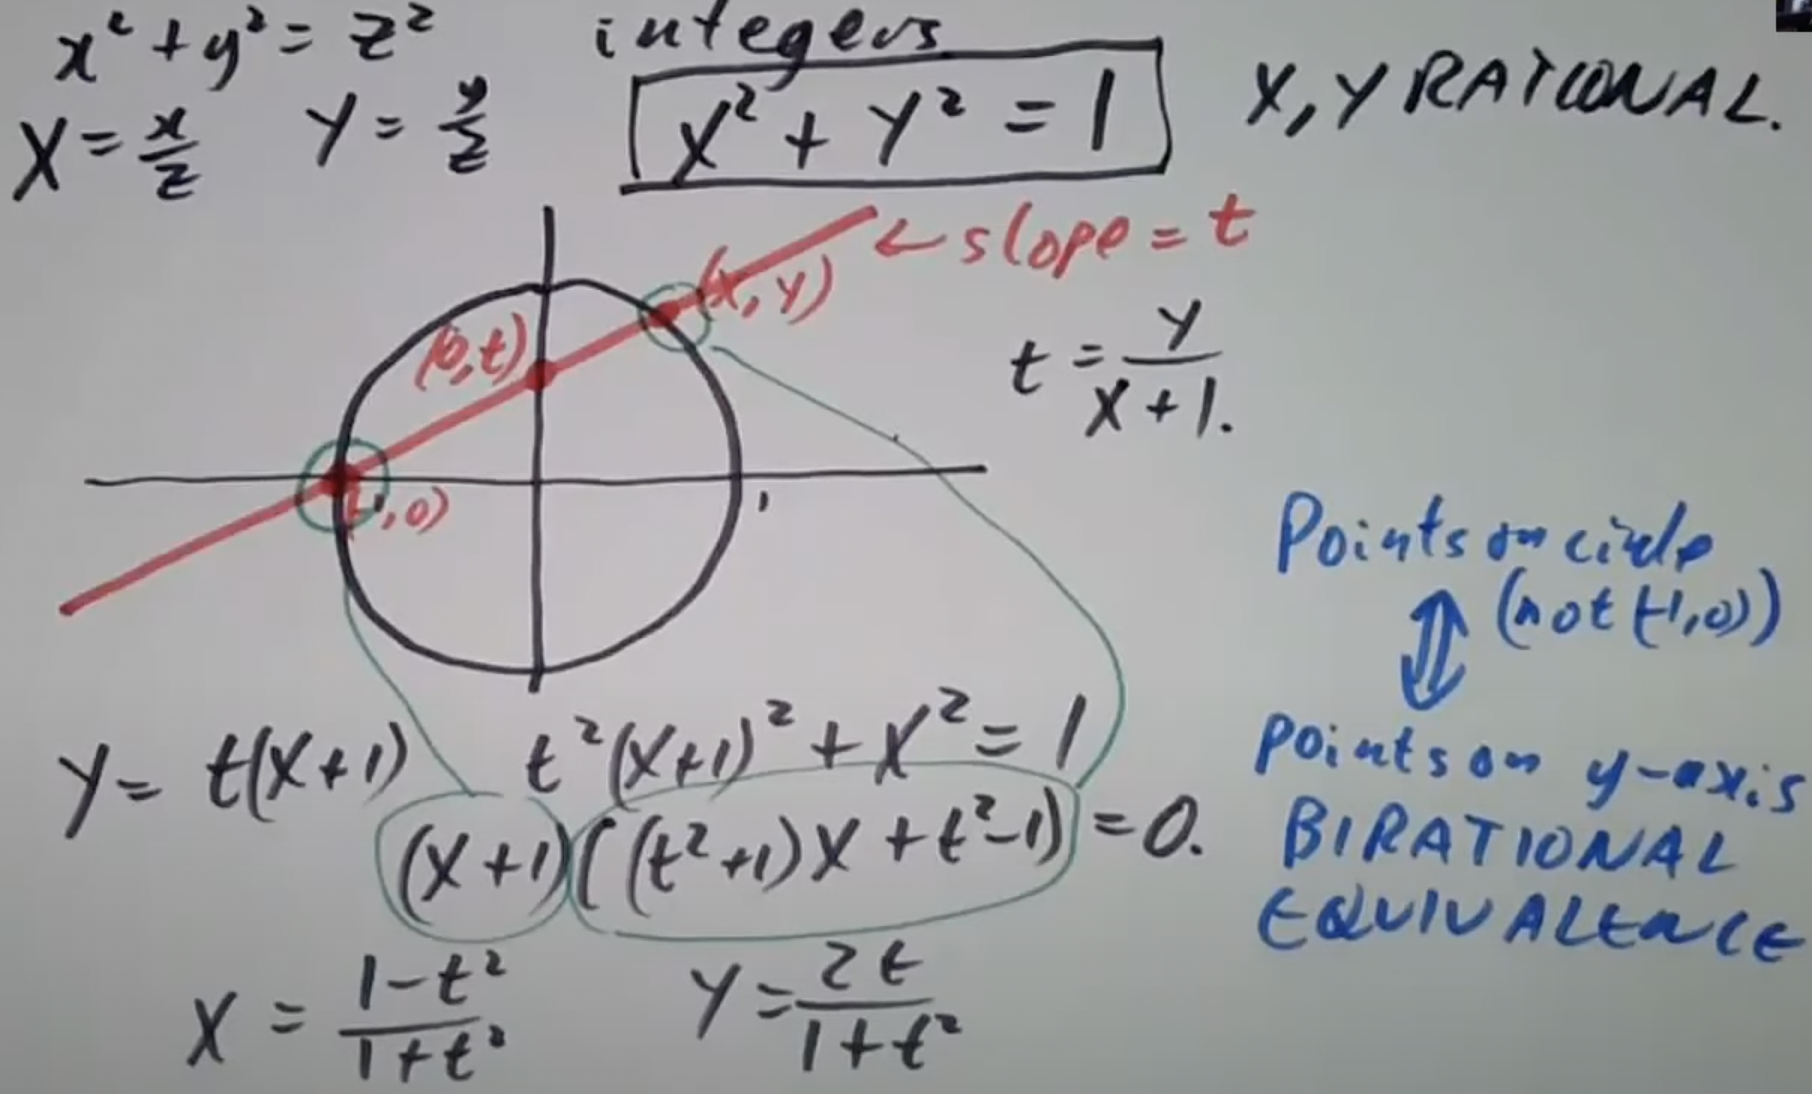 x² + y² = z² integers
X = x/z Y = y/z X² + Y² = 1 X, Y RATIONAL.
← slope = t
(X, Y)
(0, t)
t = Y/(X + 1).
(-1, 0) 1
Points on circle
(not (-1, 0))
⇕
points on y-axis
BIRATIONAL
EQUIVALENCE
Y = t(X+1) t²(X+1)² + X² = 1
(X+1)((t²+1)X + t²-1) = 0.
X = (1-t²)/(1+t²) Y = 2t/(1+t²)